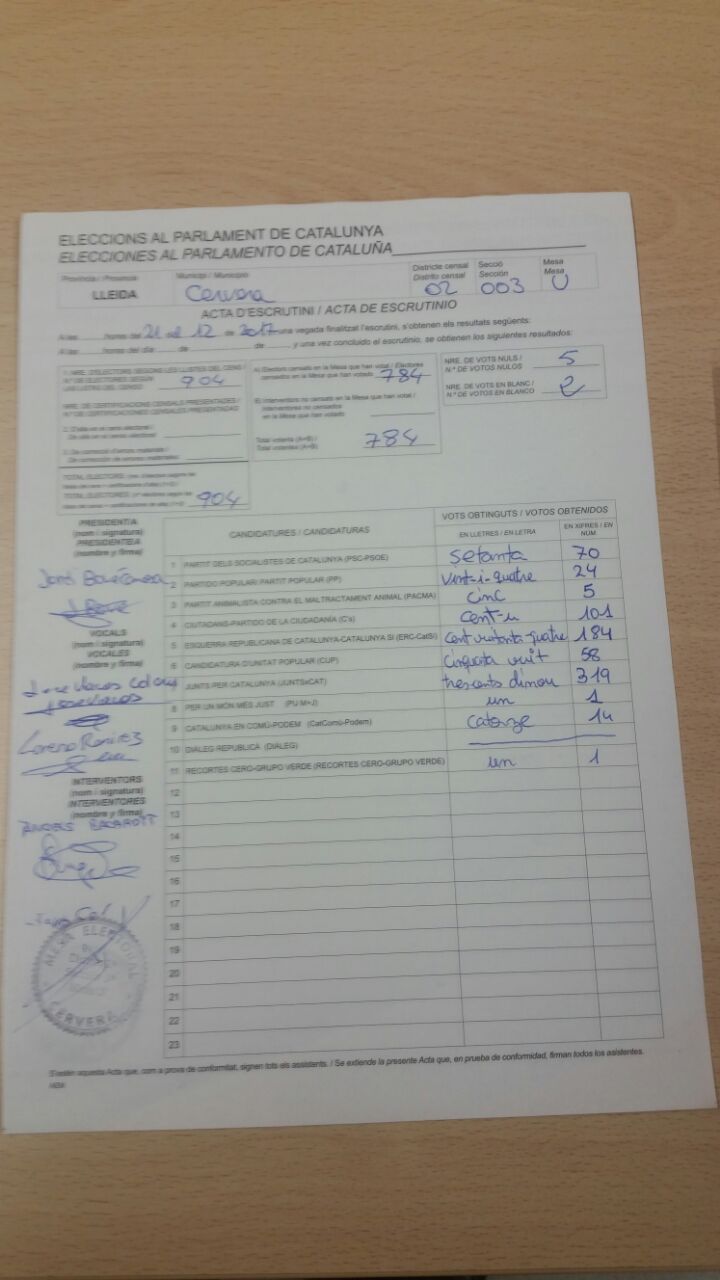 ELECCIONS AL PARLAMENT DE CATALUNYA
ELECCIONES AL PARLAMENTO DE CATALUÑA
Província / Provincia Municipi / Municipio Districte censal Secció Mesa
Distrito censal Sección Mesa
LLEIDA Cervera 02 003 U
ACTA D'ESCRUTINI / ACTA DE ESCRUTINIO
A les hores del 21 del 12 de 2017 una vegada finalitzat l'escrutini, s'obtenen els resultats següents:
A las horas del día de de y una vez concluido el escrutinio, se obtienen los siguientes resultados:
1. NRE. D'ELECTORS SEGONS LES LLISTES DEL CENS /
N.º DE ELECTORES SEGÚN
LAS LISTAS DEL CENSO 904
NRE. DE CERTIFICACIONS CENSALS PRESENTADES /
N.º DE CERTIFICACIONES CENSALES PRESENTADAS
2. D'alta en el cens electoral /
De alta en el censo electoral
3. De correcció d'errors materials /
De corrección de errores materiales
TOTAL ELECTORS
TOTAL ELECTORES 904
A) Electors censats en la Mesa que han votat / Electores
censados en la Mesa que han votado 784
B) Interventors no censats en la Mesa que han votat /
Interventores no censados
en la Mesa que han votado
Total votants (A+B) /
Total votantes (A+B) 784
NRE. DE VOTS NULS /
N.º DE VOTOS NULOS 5
NRE. DE VOTS EN BLANC /
N.º DE VOTOS EN BLANCO 2
PRESIDENT/A
(nom i signatura)
PRESIDENTE/A
(nombre y firma)
Jordi
VOCALS
(nom i signatura)
VOCALES
(nombre y firma)
INTERVENTORS
(nom i signatura)
INTERVENTORES
(nombre y firma)
ÀNGELS
MESA ELECTORAL
CERVERA
CANDIDATURES / CANDIDATURAS VOTS OBTINGUTS / VOTOS OBTENIDOS
EN LLETRES / EN LETRA EN XIFRES / EN NÚM.
1 PARTIT DELS SOCIALISTES DE CATALUNYA (PSC-PSOE) setanta 70
2 PARTIDO POPULAR/ PARTIT POPULAR (PP) vint-i-quatre 24
3 PARTIT ANIMALISTA CONTRA EL MALTRACTAMENT ANIMAL (PACMA) cinc 5
4 CIUTADANS-PARTIDO DE LA CIUDADANÍA (C's) cent-u 101
5 ESQUERRA REPUBLICANA DE CATALUNYA-CATALUNYA SÍ (ERC-CatSí) cent vuitanta quatre 184
6 CANDIDATURA D'UNITAT POPULAR (CUP) cinquata vuit 58
7 JUNTS PER CATALUNYA (JUNTSxCAT) trescents dinou 319
8 PER UN MÓN MÉS JUST (PUM+J) un 1
9 CATALUNYA EN COMÚ-PODEM (CatComú-Podem) catorze 14
10 DIÀLEG REPÚBLICA (DIÀLEG)
11 RECORTES CERO-GRUPO VERDE (RECORTES CERO-GRUPO VERDE) un 1
12
13
14
15
16
17
18
19
20
21
22
23
S'estén aquesta Acta que, com a prova de conformitat, signen tots els assistents. / Se extiende la presente Acta que, en prueba de conformidad, firman todos los asistentes.